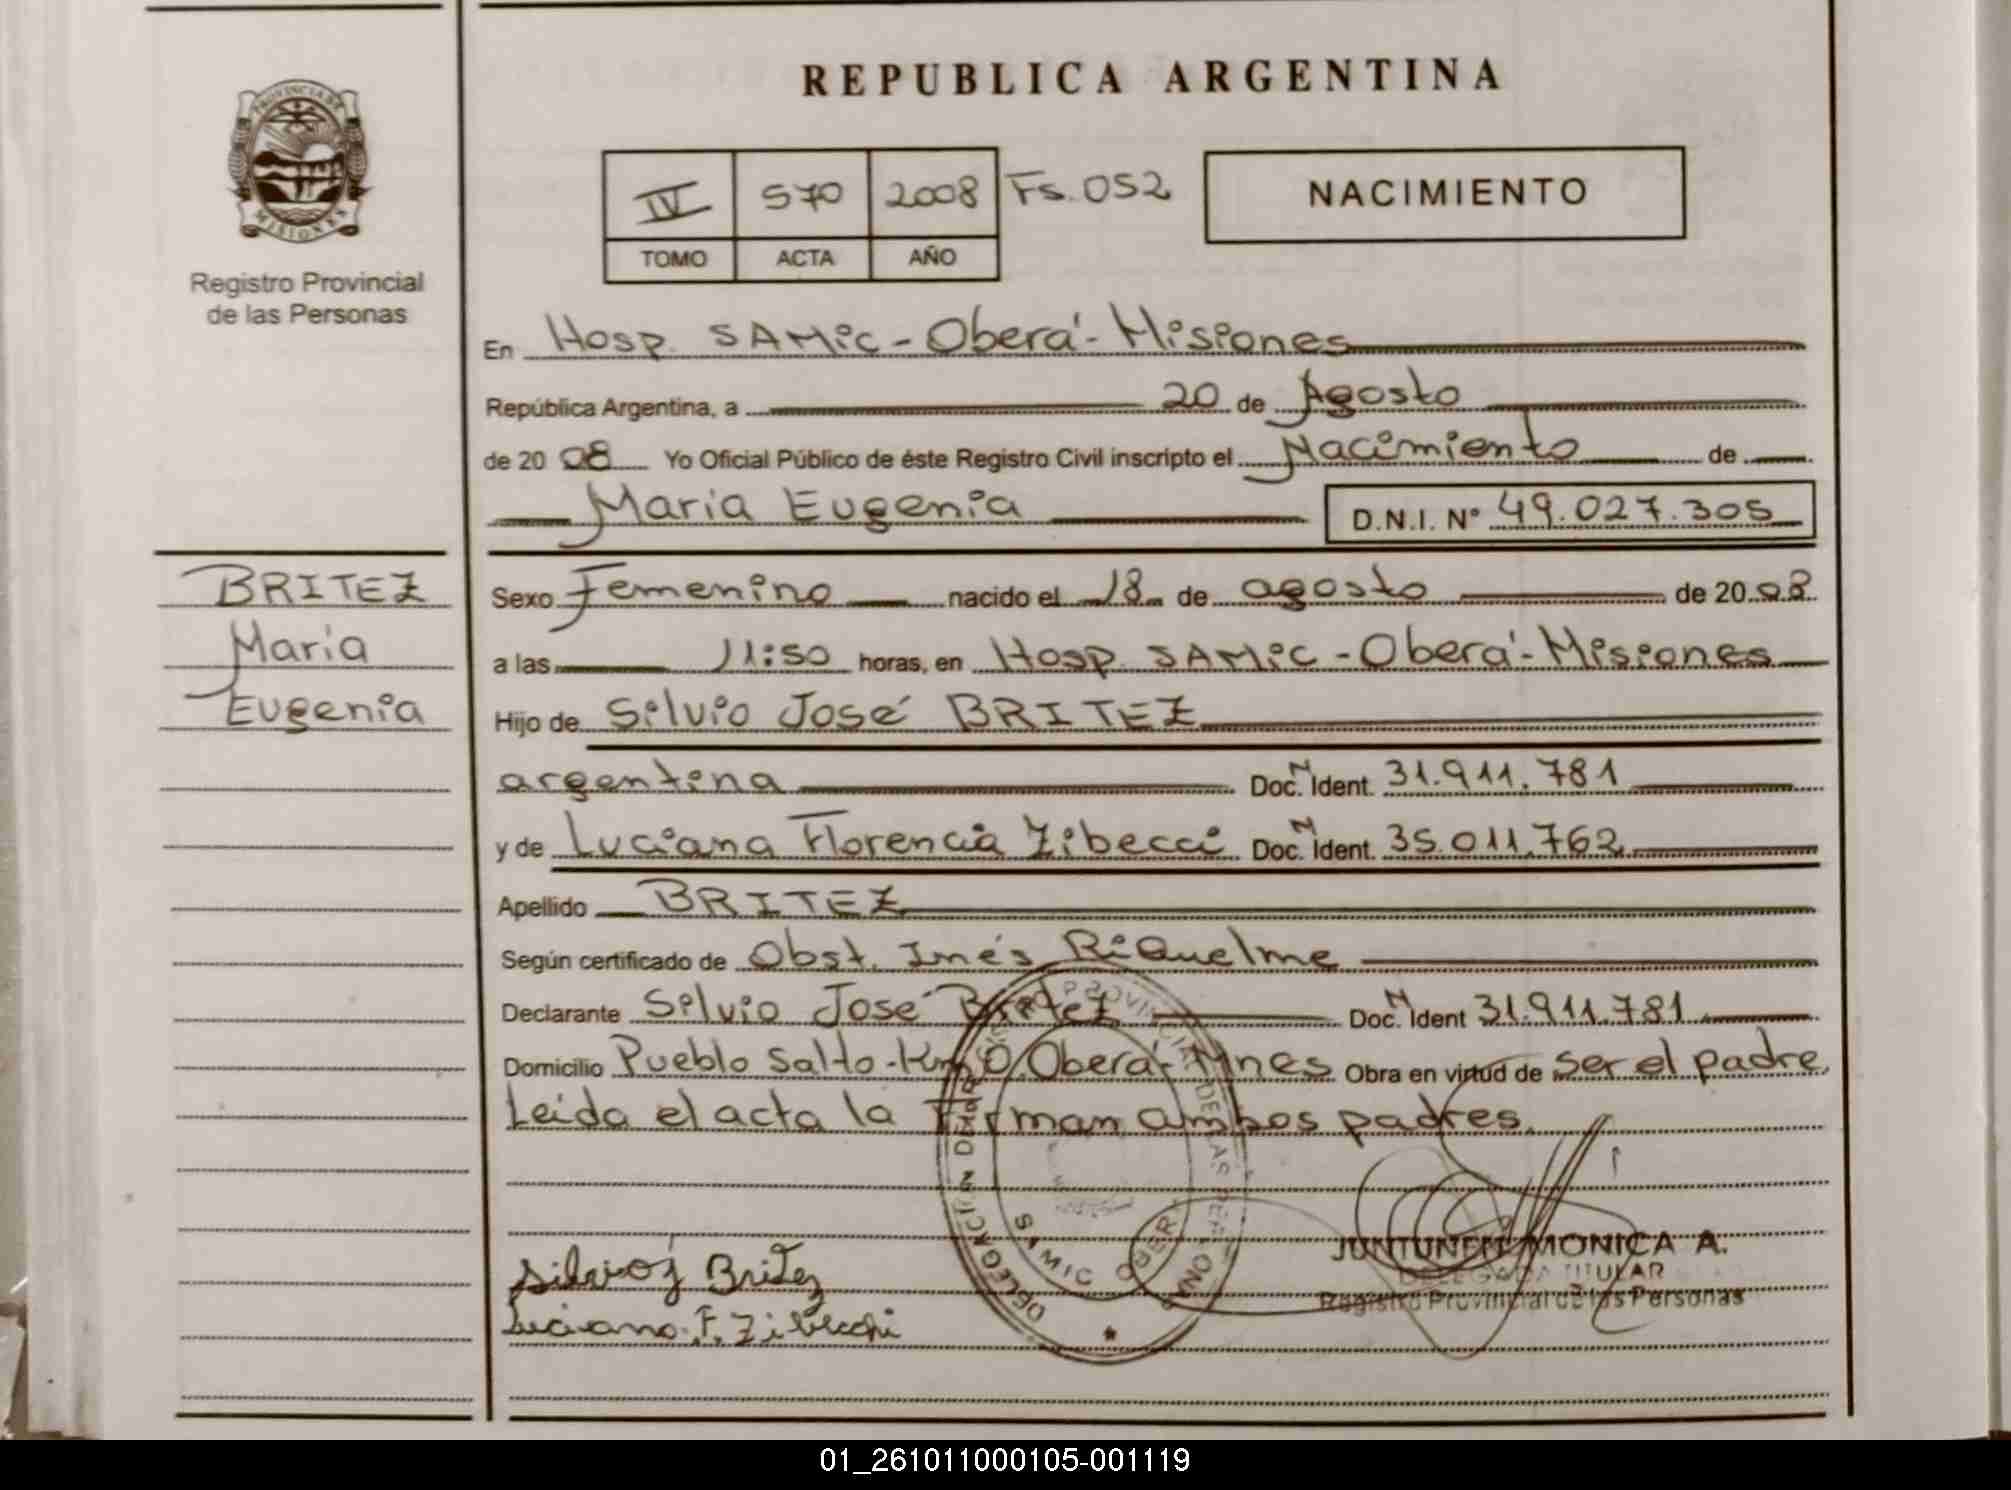 REPUBLICA ARGENTINA
PROVINCIA DE
MISIONES
Registro Provincial
de las Personas
IV 570 2008 Fs. 052
TOMO ACTA AÑO
NACIMIENTO
En Hosp. SAMic - Oberá - Misiones
República Argentina, a 20 de Agosto
de 20 08 Yo Oficial Público de éste Registro Civil inscripto el Nacimiento de
María Eugenia D.N.I. N° 49.027.305
BRITEZ
María
Eugenia
Sexo Femenino nacido el 18 de agosto de 20 08
a las 11:50 horas, en Hosp. SAMic - Oberá - Misiones
Hijo de Silvio José BRITEZ
argentina Doc. N Ident. 31.911.781
y de Luciana Florencia Zibecci Doc. N Ident. 35.011.762
Apellido BRITEZ
Según certificado de Obst. Inés Riquelme
Declarante Silvio José Britez Doc. N Ident 31.911.781
Domicilio Pueblo Salto - Km 0 Oberá - Mnes Obra en virtud de ser el padre,
Leída el acta la Firman ambos padres.
SAMIC OBERA
Silvio J Britez
Luciana F. Zibecchi
JUNTUNEN MONICA A.
DELEGADA TITULAR
Registro Provincial de las Personas
01_261011000105-001119